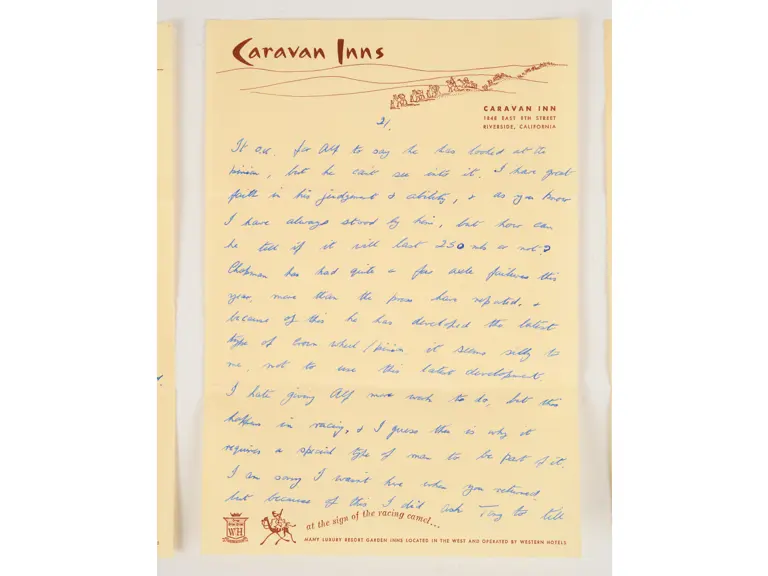 Caravan Inns
CARAVAN INN
1848 EAST 8TH STREET
RIVERSIDE, CALIFORNIA
2/.
It o.k. for Alf to say he has looked at the
pinion, but he can't see into it. I have great
faith in his judgement & ability, & as you know
I have always stood by him, but how can
he tell if it will last 250 mls or not?
Chapman has had quite a few axle failures this
year, more than the press have reported, &
because of this he has developed the latest
type of crown wheel/pinion. it seems silly to
me, not to use this latest development.
I hate giving Alf more work to do, but this
happens in racing, & I guess this is why it
requires a special type of man to be part of it.
I am sorry I wasn't here when you returned,
but because of this I did ask Tony to tell
WH
at the sign of the racing camel...
MANY LUXURY RESORT GARDEN INNS LOCATED IN THE WEST AND OPERATED BY WESTERN HOTELS